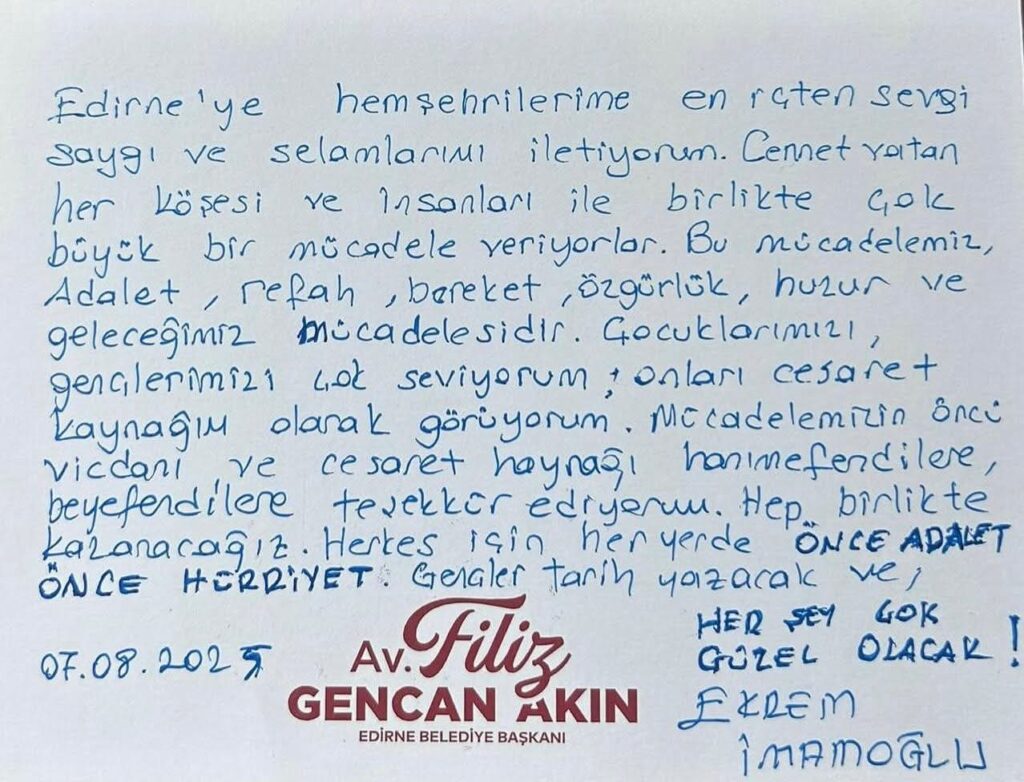 Edirne'ye hemşehrilerime en içten sevgi
saygı ve selamlarımı iletiyorum. Cennet vatan
her köşesi ve insanları ile birlikte çok
büyük bir mücadele veriyorlar. Bu mücadelemiz,
Adalet, refah, bereket, özgürlük, huzur ve
geleceğimiz mücadelesidir. Çocuklarımızı,
gençlerimizi çok seviyorum, onları cesaret
kaynağım olarak görüyorum. Mücadelemizin öncü
vicdanı ve cesaret kaynağı hanımefendilere,
beyefendilere teşekkür ediyorum. Hep birlikte
kazanacağız. Herkes için her yerde ÖNCE ADALET
ÖNCE HÜRRİYET. Gençler tarih yazacak ve,
HER ŞEY ÇOK
GÜZEL OLACAK!
07.08.2025
EKREM
İMAMOĞLU
Av. Filiz
GENCAN AKIN
EDİRNE BELEDİYE BAŞKANI